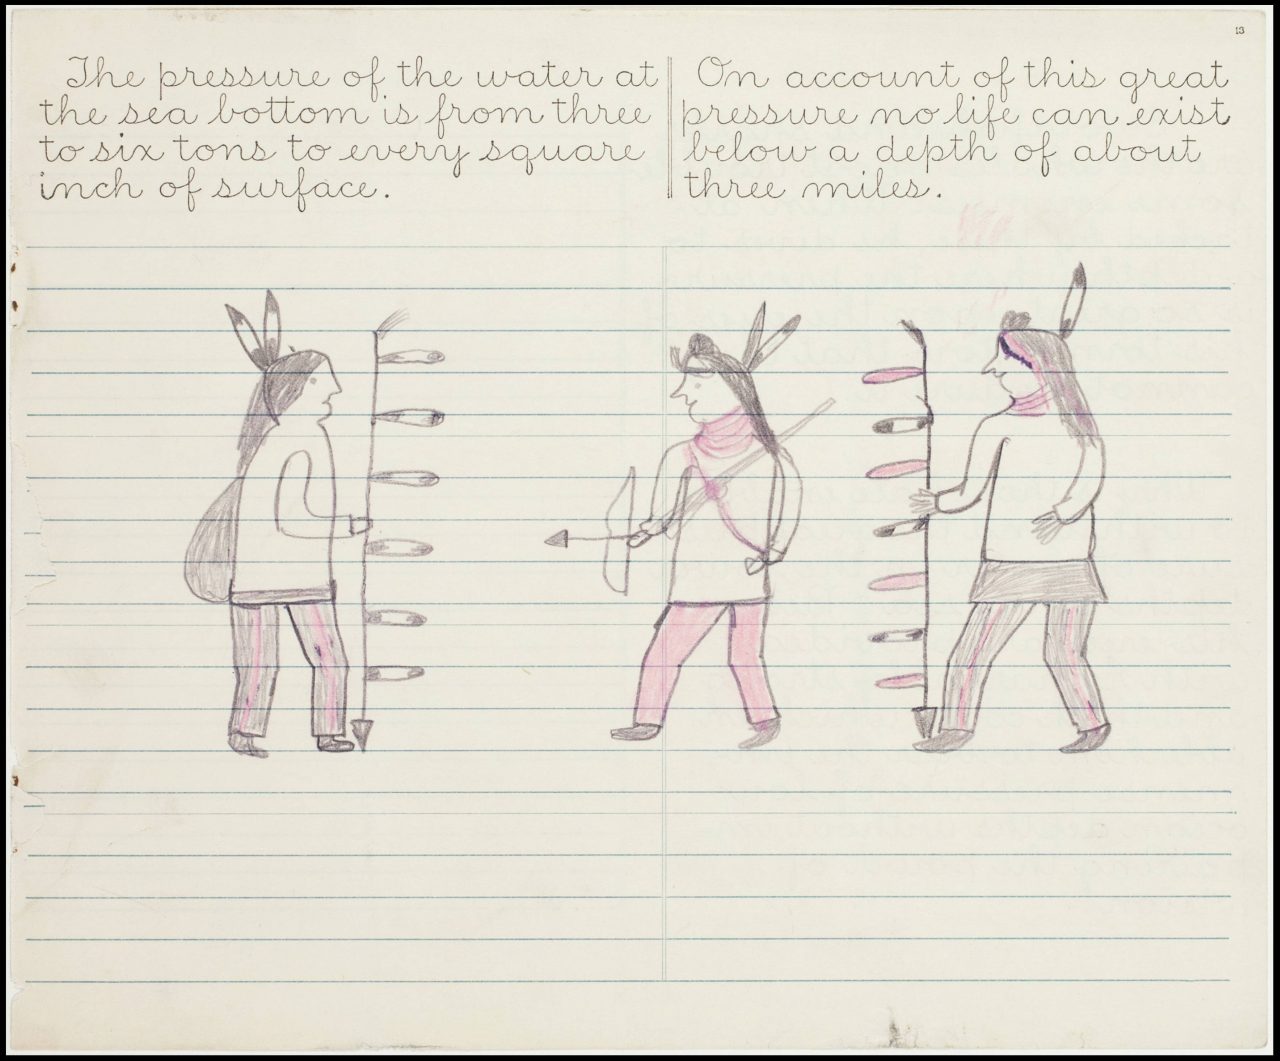 13
The pressure of the water at
the sea bottom is from three
to six tons to every square
inch of surface.
On account of this great
pressure no life can exist
below a depth of about
three miles.